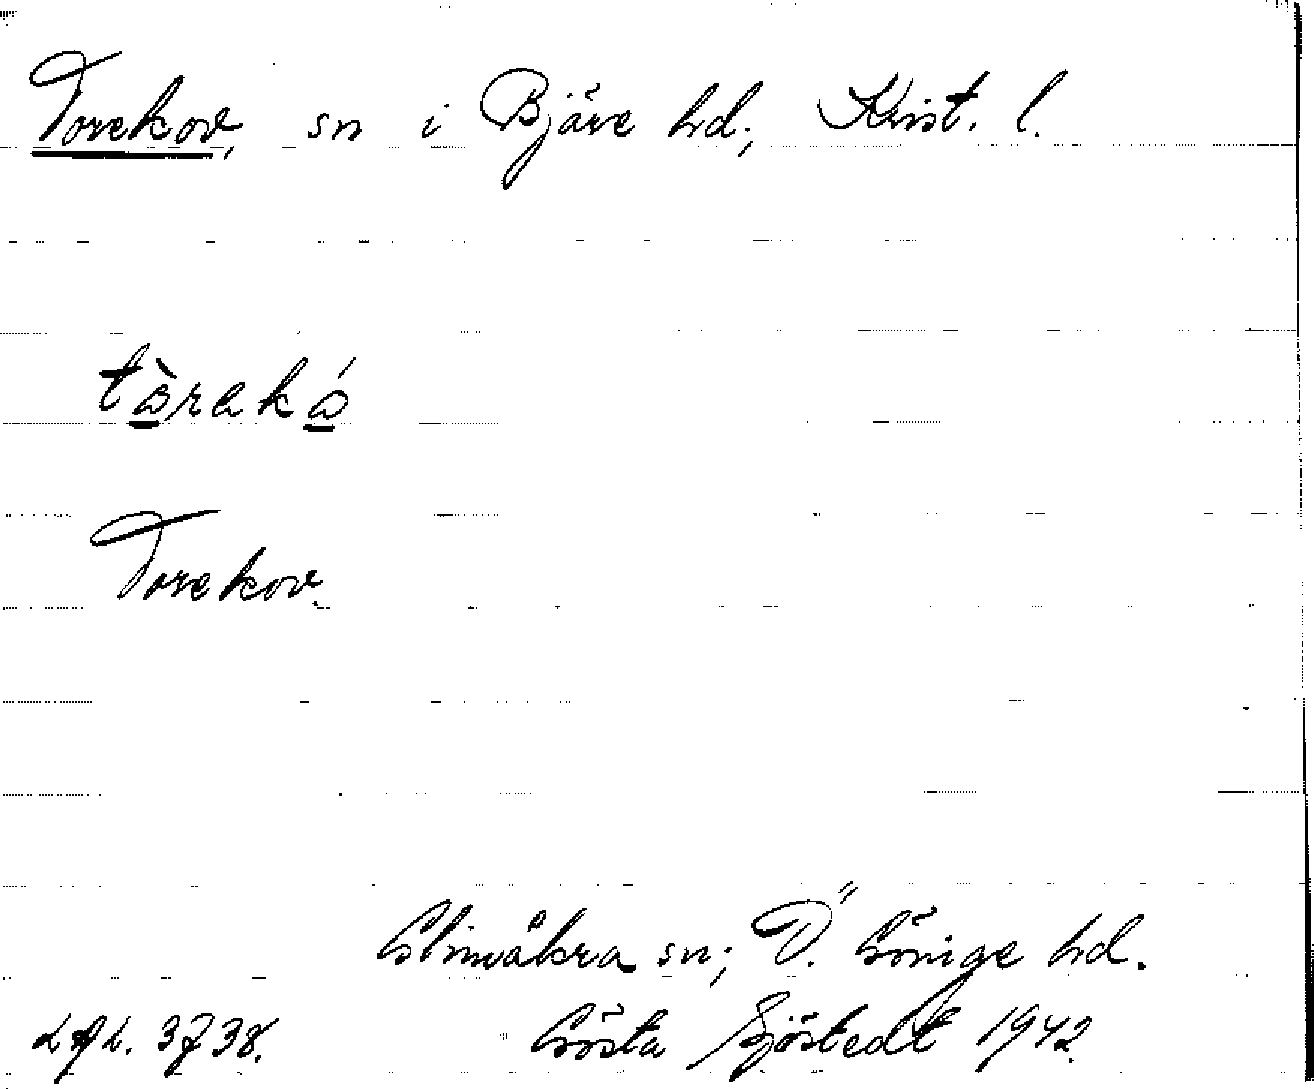 Torekov, sn i Bjäre hd; Krist. l.
tòrakó
Torekov.
Glimåkra sn; Ö. Göinge hd.
LAL. 3738. Gösta Sjöstedt 1942.